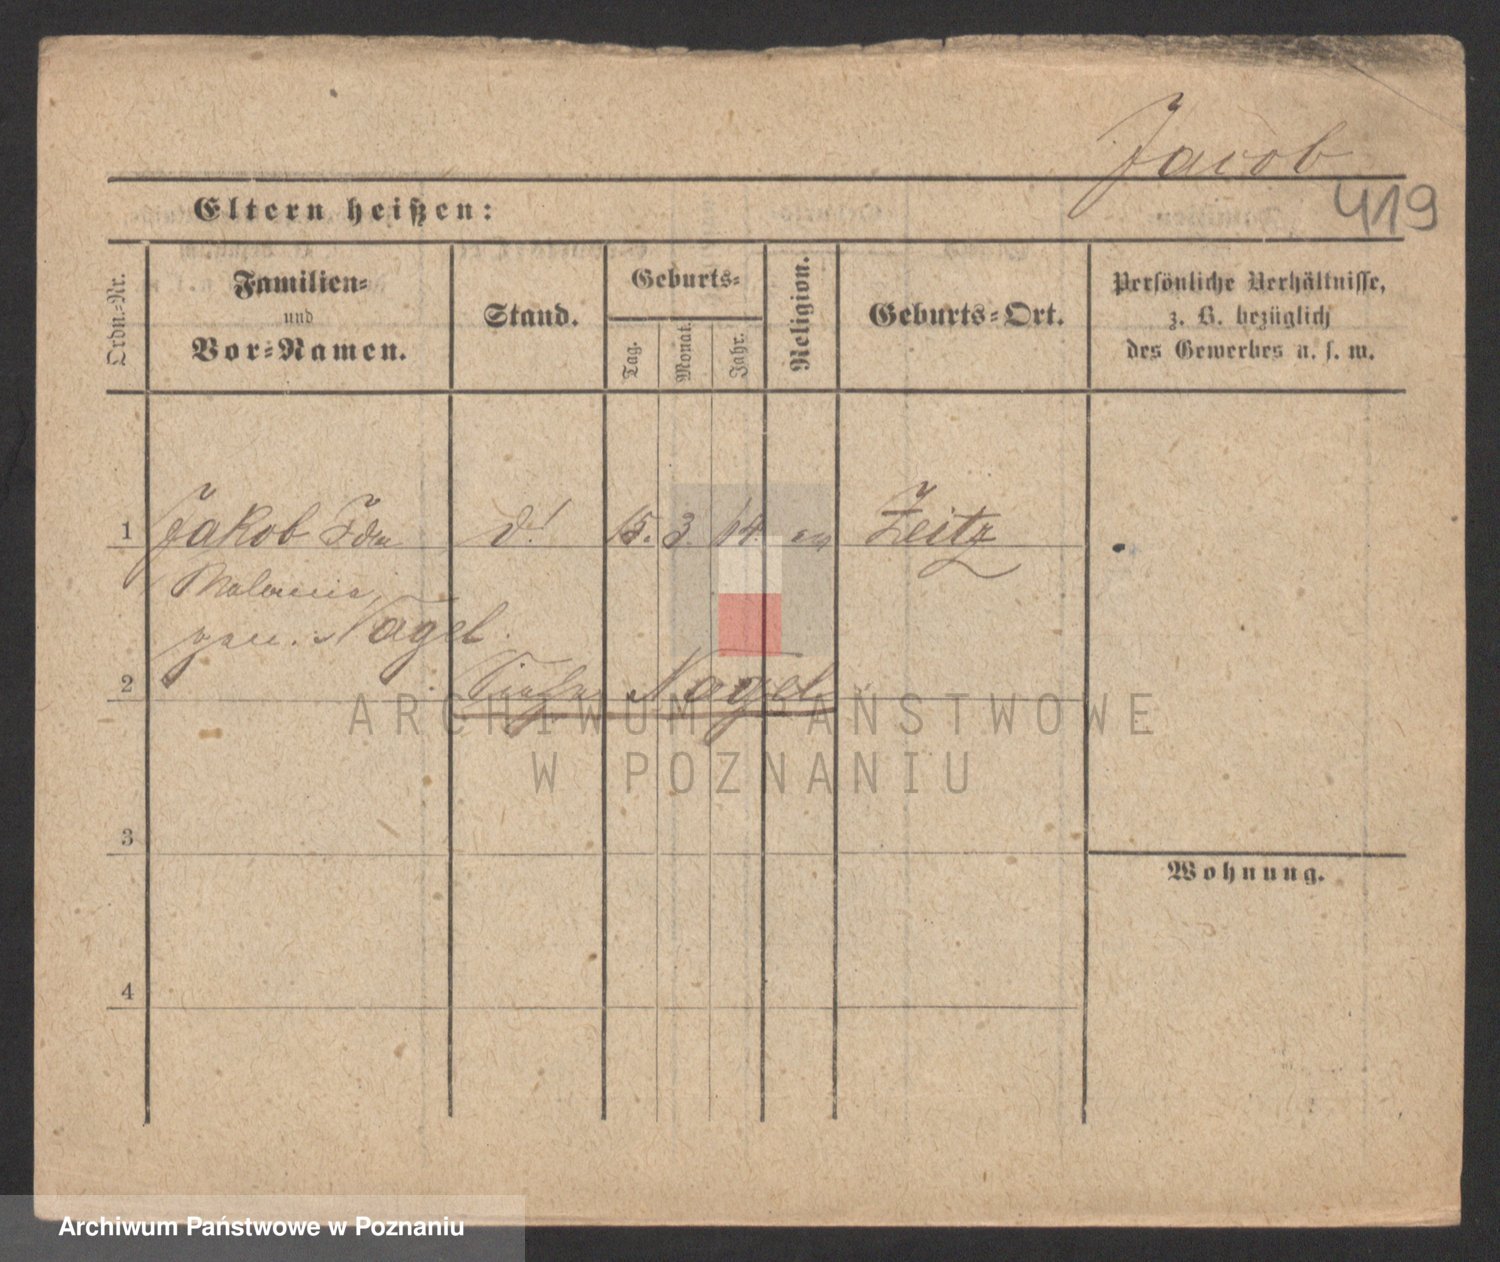 Jacob
419
Eltern heißen:
Ordn.-Nr.
Familien-
und
Vor-Namen.
Stand.
Geburts-
Tag.
Monat.
Jahr.
Religion.
Geburts-Ort.
Persönliche Verhältnisse,
z. B. bezüglich
des Gewerbes u. s. w.
1 Jakob 15. 3. 14. ev Zeitz
Nagel
2 Siehe Nagel
3
Wohnung.
4
ARCHIWUM PAŃSTWOWE
W POZNANIU
Archiwum Państwowe w Poznaniu